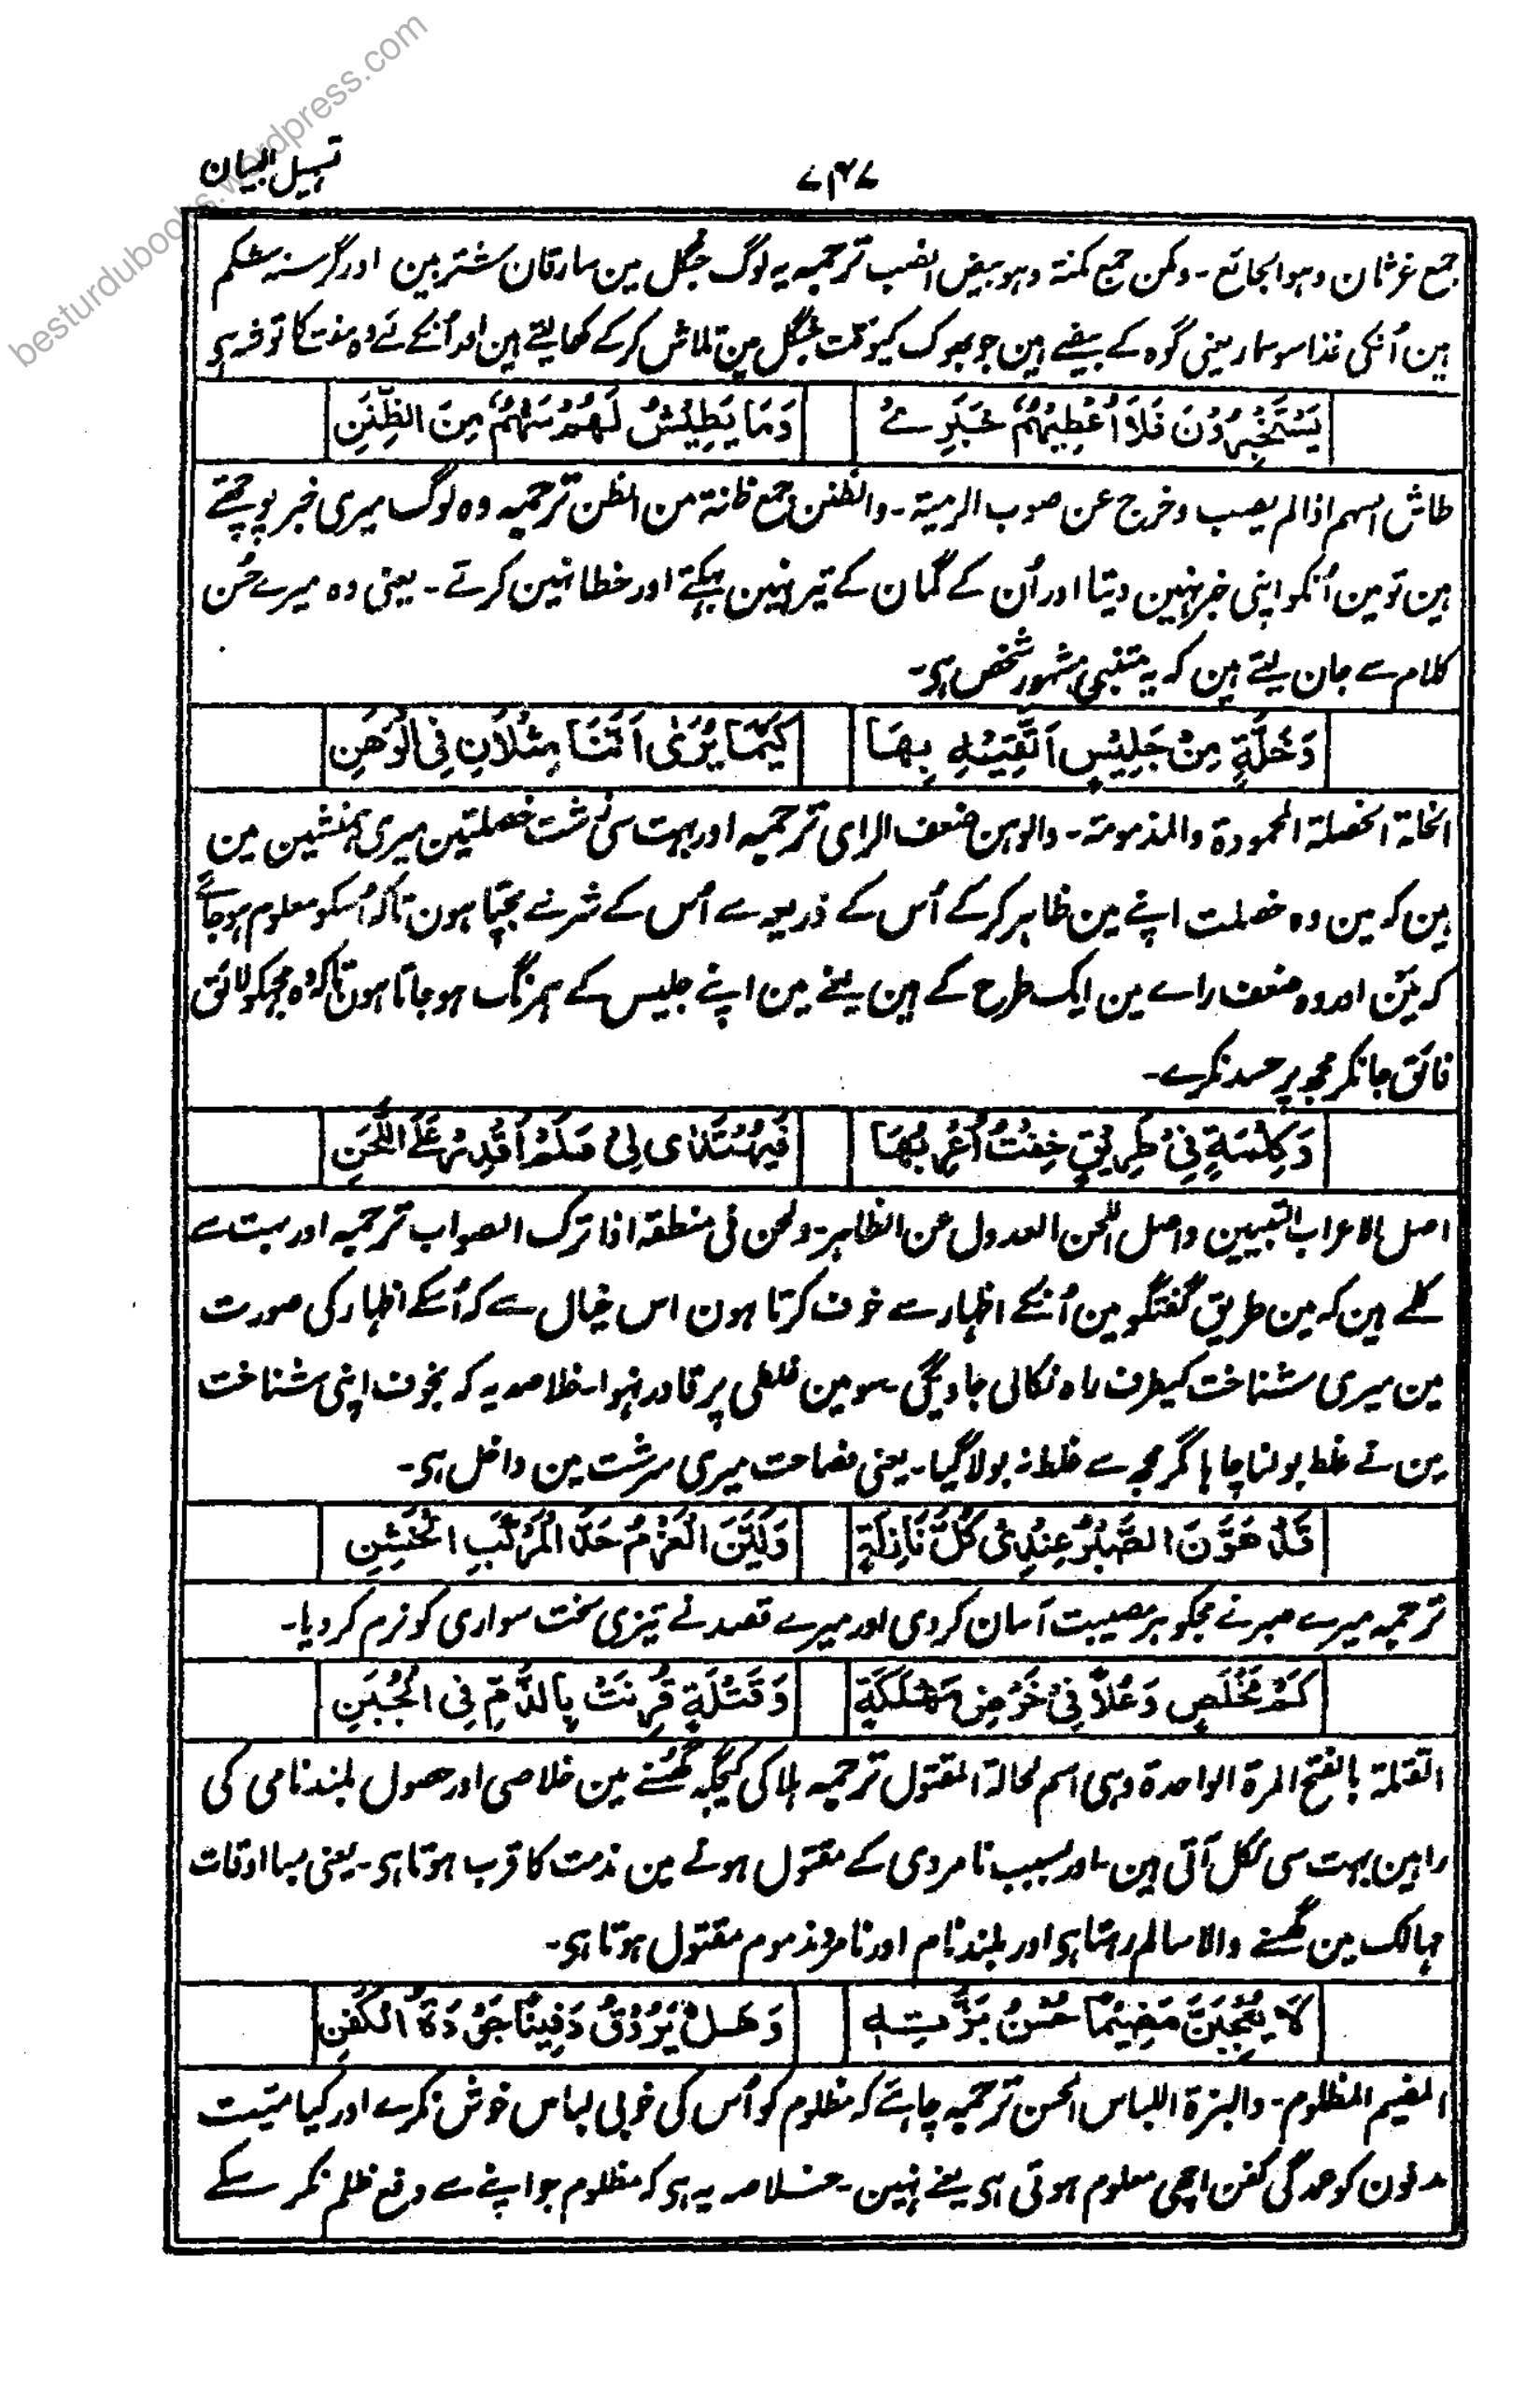 besturdubooks.wordpress.com
تسہیل البیان
۷۴۷
جمع غرثان وہو الجائع۔ ومکن جمع مکنۃ وہو بیض الضب ترجمہ یہ لوگ جنگل مین سارقان شتر ہین اور گرسنہ شکم
ہین اُنکی غذا سوسمار یعنی گوہ کے بیضے ہین جو بھوک کیوقت جنگل مین تلاش کرکے کھا لیتے ہین اور اُنکے لئے وہ مفت کا توفہ ہی
يَسْتَخْبِرُوْنَ فَلَا اُعْطِيْهِمُ خَبَرِيْ وَمَا يَطِيْشُ لَهُمْ سَهْمٌ مِنَ الظِّنَنِ
طاش السہم اذا لم یصب وخرج عن صوب الرمیۃ۔ والظنن جمع ظانۃ من الظن ترجمہ وہ لوگ میری خبر پوچھتے
ہین تو مین اُنکو اپنی خبر نہین دیتا اور اُن کے گمان کے تیر نہین بہکتے اور خطا نہین کرتے۔ یعنی وہ میرے حُسن
کلام سے جان لیتے ہین کہ یہ متنبی مشہور شخص ہی۔
وَخَلَّةٍ مِنْ جَلِيْسٍ اَتَّقِيْهِ بِهَا كَيْمَا يُرٰى اَنَّنَا مِثْلَانِ فِي الْوَهَنِ
الخلۃ الخصلۃ المحمودۃ والمذمومۃ۔ والوہن ضعف الرای ترجمہ اور بہت سی زشت خصلتین میری ہمنشین مین
ہین کہ مین وہ خصلت اپنے مین ظاہر کرکے اُس کے ذریعہ سے اُس کے شر سے بچتا ہون تاکہ اُسکو معلوم ہوجاے
کہ مین اور وہ ضعف راے مین ایک طرح کے ہین یعنے مین اپنے جلیس کے ہمرنگ ہو جاتا ہون تاکہ وہ مجھکو لائق
فائق جانکر مجھ پر حسد نکرے۔
وَكِلْمَةٍ فِيْ طَرِيْقٍ خِفْتُ اُعْرِبُهَا فَيُهْتَدٰى لِيْ فَلَمْ اَقْدِرْ عَلَى اللَّحَنِ
اصل الاعراب التبیین واصل اللحن العدول عن الظاہر۔ ولحن فی منطقہ اذا ترک الصواب ترجمہ اور بہت سے
کلمے ہین کہ مین طریق گفتگو مین اُنکے اظہار سے خوف کرتا ہون اس خیال سے کہ اُسکے اظہار کی صورت
مین میری شناخت کیطرف راہ نکالی جاویگی۔ سو مین غلطی پر قادر نہوا۔ خلاصہ یہ کہ بخوف اپنی شناخت
مین نے غلط بولنا چاہا مگر مجھ سے غلط نہ بولا گیا۔ یعنی فصاحت میری سرشت مین داخل ہی۔
قَدْ هَوَّنَ الصَّبْرُ عِنْدِيْ كُلَّ نَازِلَةٍ وَلَيَّنَ الْعَزْمُ حَدَّ الْمَرْكَبِ الْخَشِنِ
ترجمہ میرے صبر نے مجکو ہر مصیبت آسان کردی اور میرے قصد نے تیزی سخت سواری کو نرم کر دیا۔
كَمْ مَخْلَصٍ وَعُلًا فِيْ خَوْضِ مَهْلَكَةٍ وَقَتْلَةٍ قُرِنَتْ بِالذَّمِّ فِي الْجُبَنِ
القتلۃ بالفتح المرۃ الواحدۃ وہی اسم لحالۃ المقتول ترجمہ ہلاکی کیجگہ گھُسنے مین خلاصی اور حصول بلندنامی کی
راہین بہت سی نکل آتی ہین۔ اور بسبب نامردی کے مقتول ہونے مین مذمت کا قرب ہوتا ہی۔ یعنی بسا اوقات
مہالک مین گھسنے والا سالم رہتا ہی اور بلند نام اور نامرد مذموم مقتول ہوتا ہی۔
لَا يُعْجِبَنَّ مَضِيْمًا حُسْنُ بِزَّتِهٖ وَهَلْ يَرُوْقُ دَفِيْنًا جَوْدَةُ الْكَفَنِ
المضیم المظلوم۔ والبزۃ اللباس الحسن ترجمہ چاہئے کہ مظلوم کو اُس کی خوبی لباس خوش نکرے اور کیا میّت
مدفون کو عمدگی کفن اچھی معلوم ہوتی ہی یعنے نہین۔ خلاصہ یہ ہی کہ مظلوم جو اپنے سے دفع ظلم نکر سکے